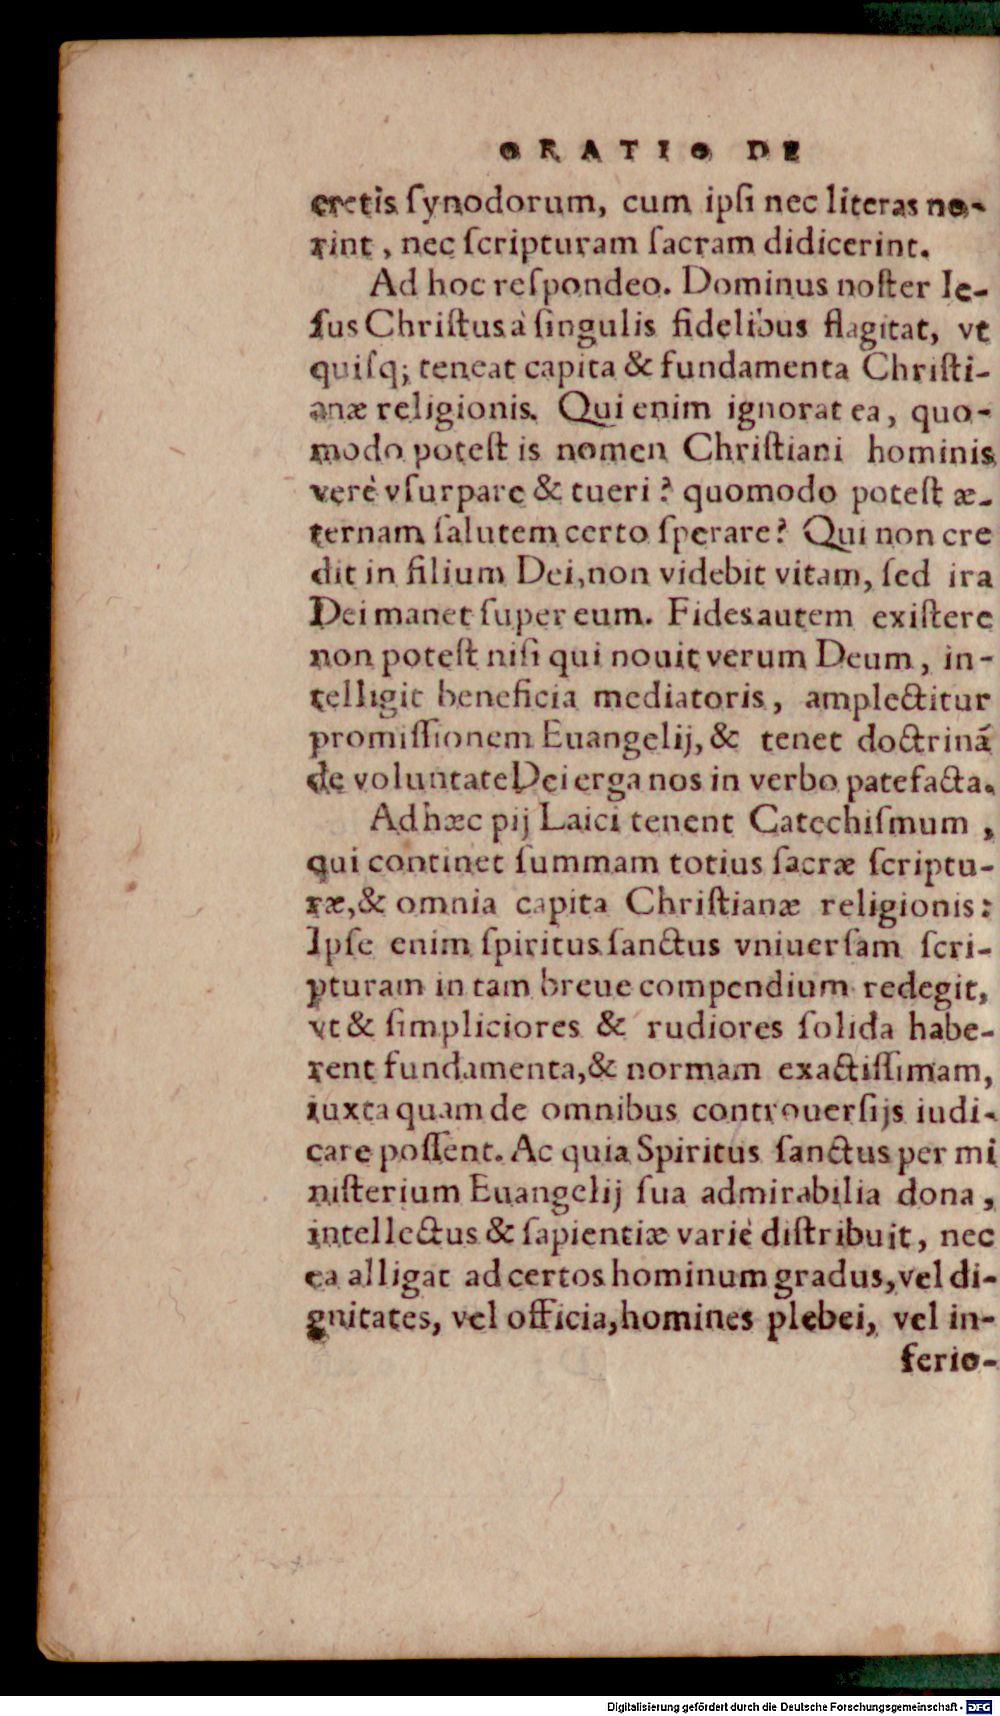 ORATIO DE
cretis ſynodorum, cum ipſi nec literas no-
rint, nec ſcripturam ſacram didicerint.
Ad hoc reſpondeo. Dominus noſter Ie-
ſus Chriſtus à ſingulis fidelibus flagitat, vt
quiſq; teneat capita & fundamenta Chriſti-
anæ religionis. Qui enim ignorat ea, quo-
modo poteſt is nomen Chriſtiani hominis
verè vſurpare & tueri? quomodo poteſt æ-
ternam ſalutem certo ſperare? Qui non cre
dit in filium Dei, non videbit vitam, ſed ira
Dei manet ſuper eum. Fides autem exiſtere
non poteſt niſi qui nouit verum Deum, in-
telligit beneficia mediatoris, amplectitur
promiſſionem Euangelij, & tenet doctrinã
de voluntate Dei erga nos in verbo patefacta.
Ad hæc pij Laici tenent Catechiſmum,
qui continet ſummam totius ſacræ ſcriptu-
ræ, & omnia capita Chriſtianæ religionis:
Ipſe enim ſpiritus ſanctus vniuerſam ſcri-
pturam in tam breue compendium redegit,
vt & ſimpliciores & rudiores ſolida habe-
rent fundamenta, & normam exactiſſimam,
iuxta quam de omnibus controuerſijs iudi-
care poſſent. Ac quia Spiritus ſanctus per mi
niſterium Euangelij ſua admirabilia dona,
intellectus & ſapientiæ variè diſtribuit, nec
ea alligat ad certos hominum gradus, vel di-
gnitates, vel officia, homines plebei, vel in-
ferio-
Digitalisierung gefördert durch die Deutsche Forschungsgemeinschaft - DFG